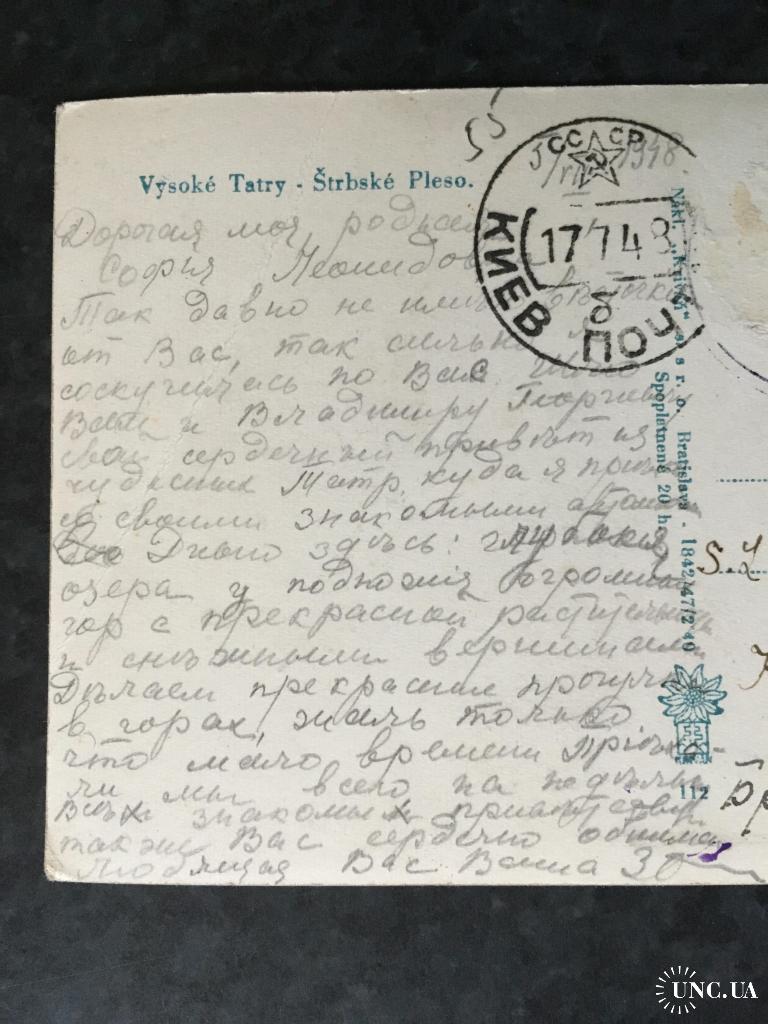 5/VII 1948.
Vysoké Tatry - Štrbské Pleso.
СССР
КИЕВ
17 7 48
б
ПОЧ
Дорогая моя, родная
София Леонидов
Так давно не им весточк
от Вас, так сильно
соскучилась по Вас
Вам и Владимиру Георгиевичу
свой сердечный привѣт из
чудесных Татр, куда я
со своими знакомыми
Дивно здѣсь: глубокия
озера у подножия огромных
гор с прекрасной растительн
и снѣжными вершинами
Дѣлаем прекрасные прогулк
в горах, жаль только
что мало времени Приѣха-
ли мы всего на недѣлю
Всѣх знакомых привѣтствую
также Вас сердечно обнимаю
Любящая Вас Ваша Зо
Nákl. „Knivýt" s. s r. o. Bratislava - 1842/47/2 40
Spoplatnené 20 h.
S. L
112
UNC.UA